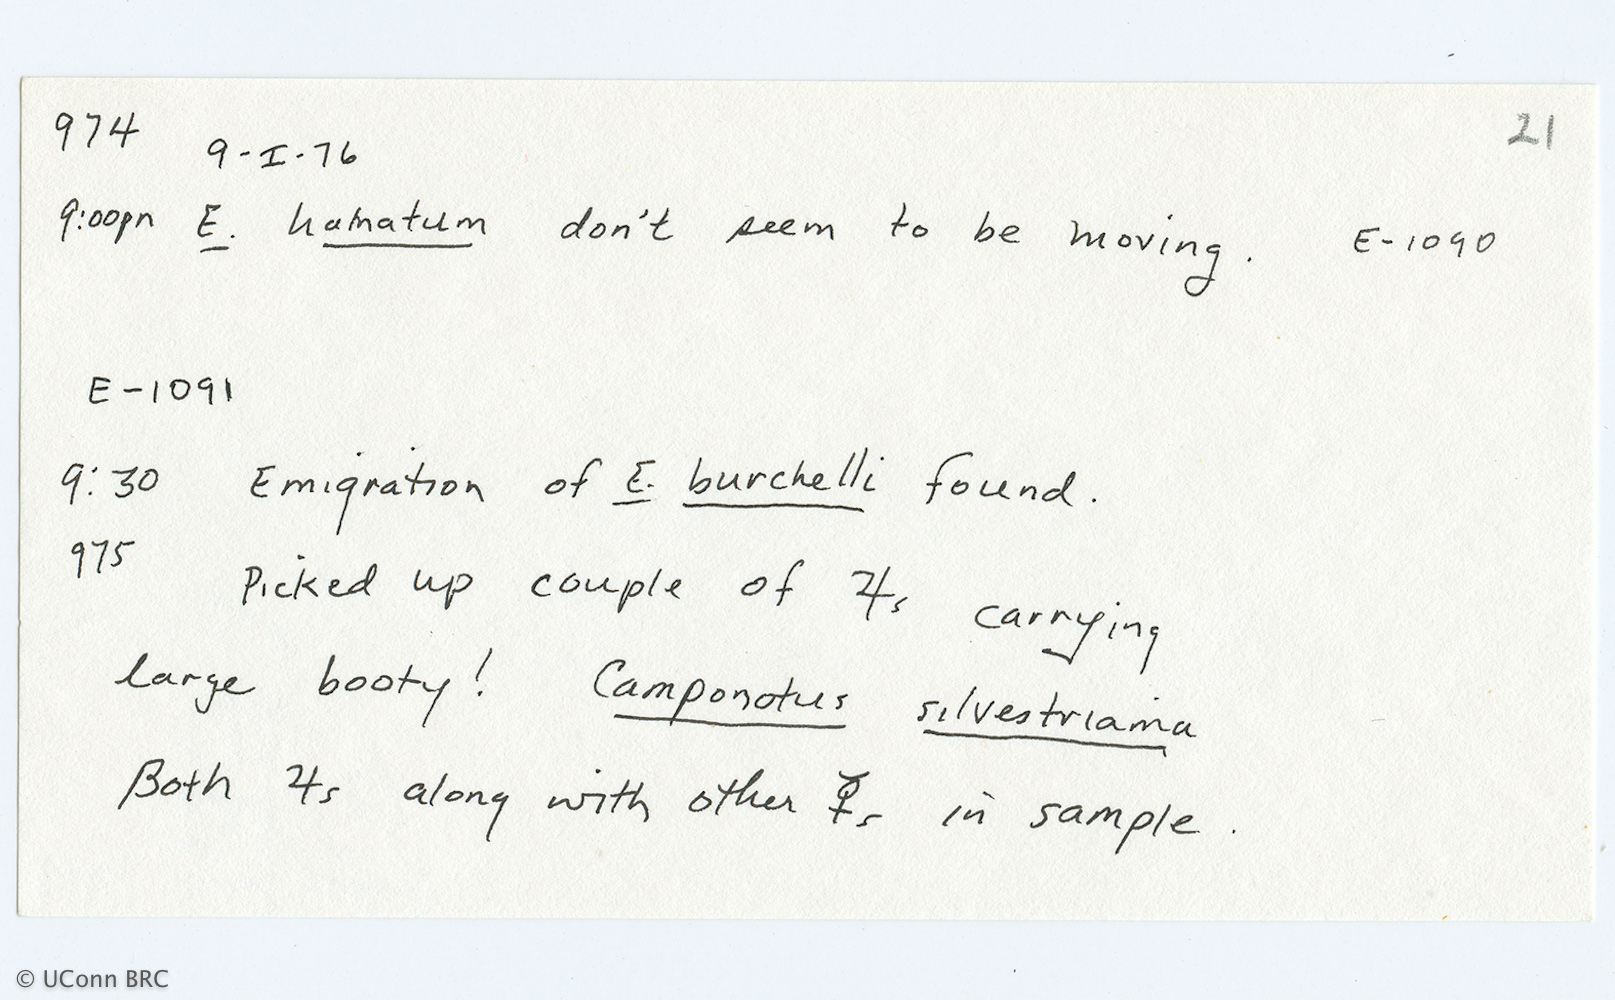 974
21
9-I-76
9:00pm E. hamatum don't seem to be moving. E-1090
E-1091
9:30 Emigration of E. burchelli found.
975
Picked up couple of ♃s carrying
large booty! Camponotus
Both ♃s along with other ☿s in sample.
© UConn BRC